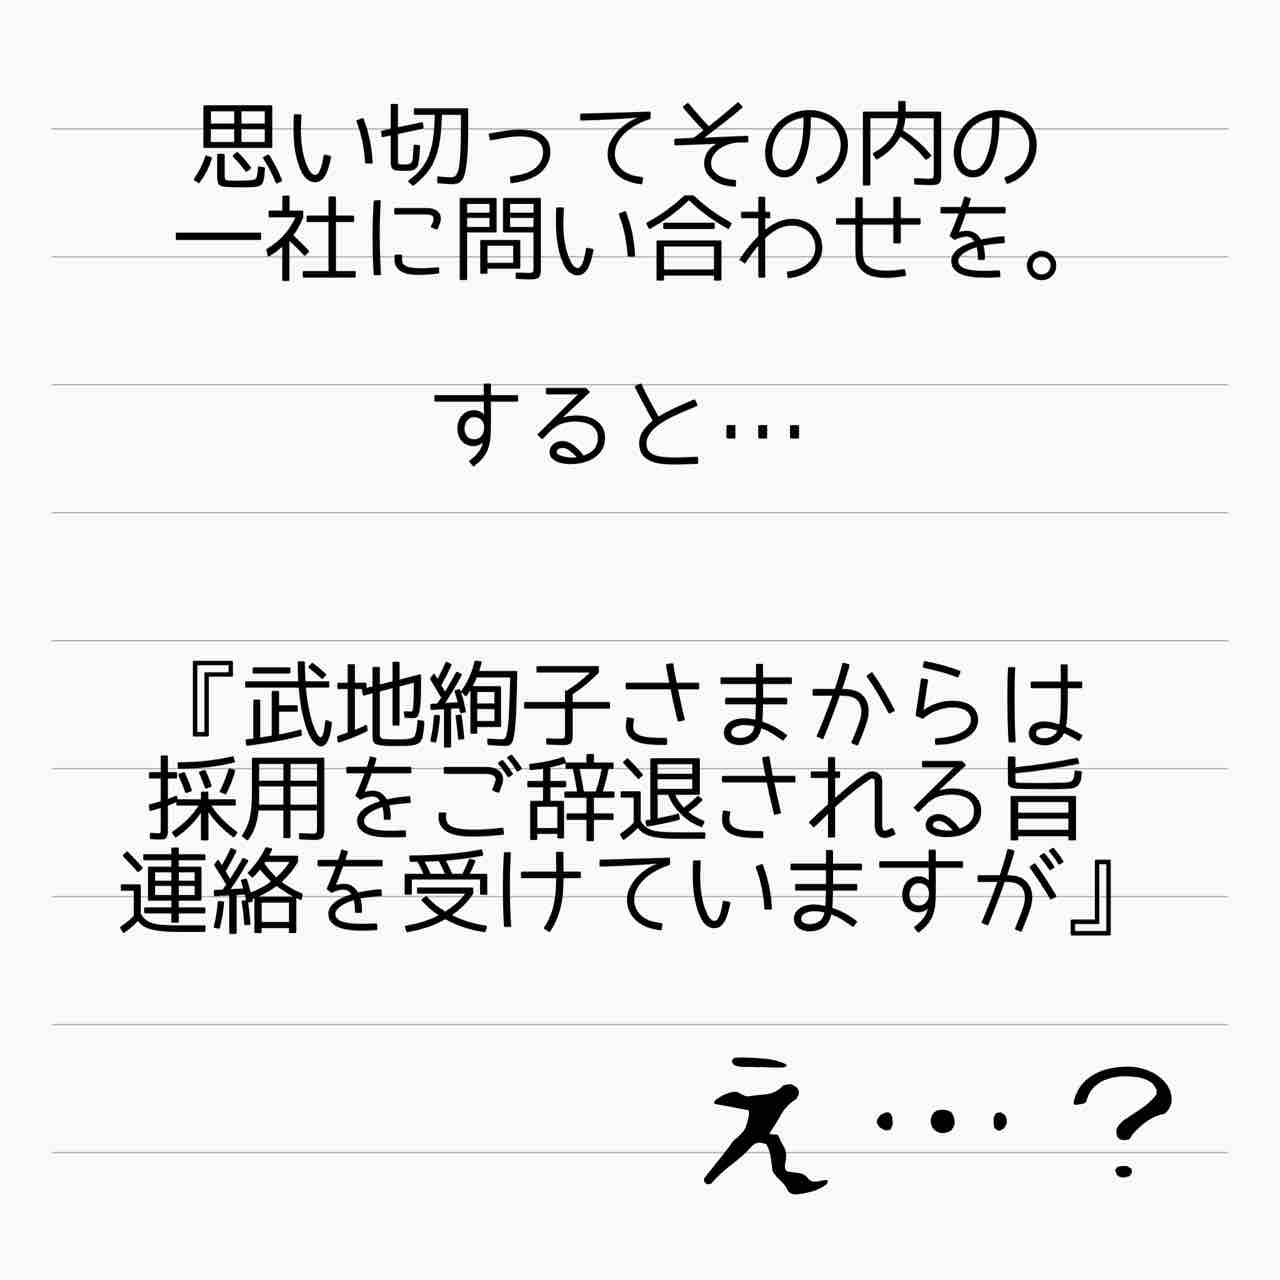 思い切ってその内の
一社に問い合わせを。
すると…
『武地絢子さまからは
採用をご辞退される旨
連絡を受けていますが』
え…？